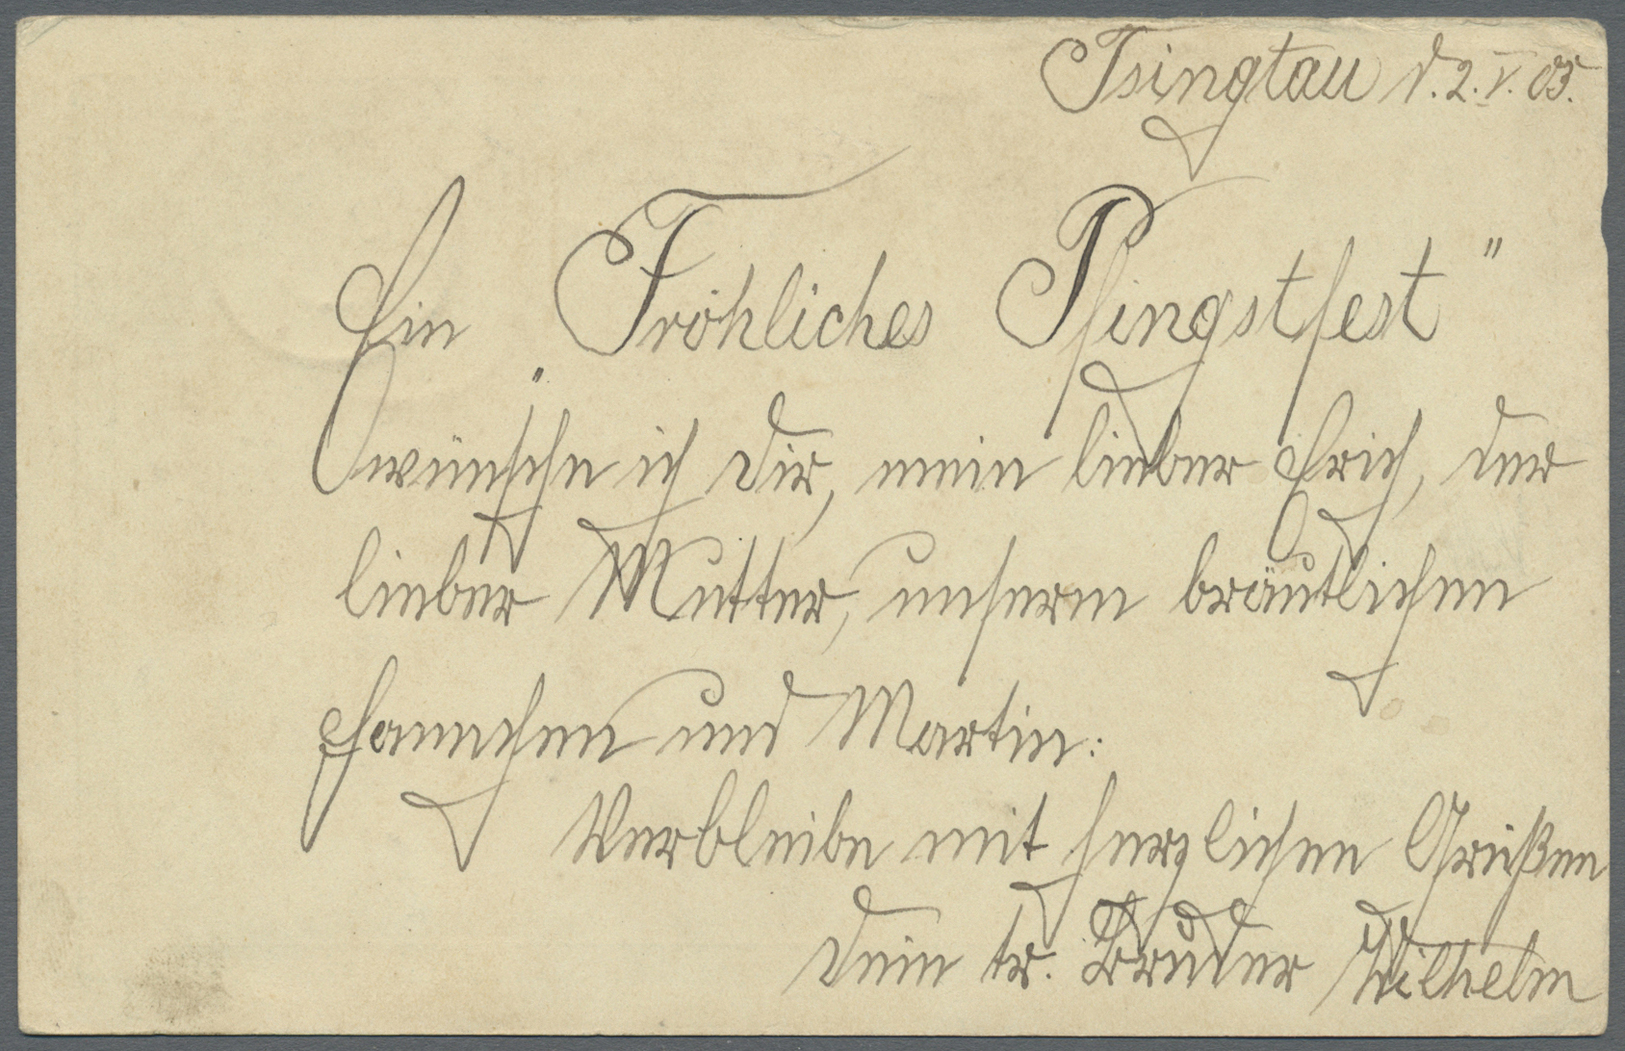 Tsingtau d. 2. V. 05.
Ein „Fröhliches Pfingstfest"
wünsche ich dir, mein lieber Erich, der
lieber Mutter, unserm bräutlichen
Hannchen und Martin.
Verbleibe mit herzlichen Grüßen
dein tr. Bruder Wilhelm